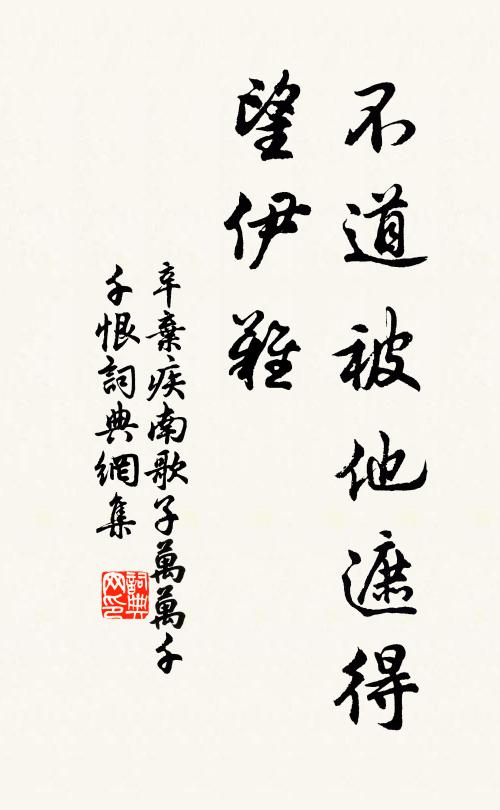 不道被他遮得
望伊難
辛棄疾南歌子萬萬千
千恨詞典網集
詞典
网印